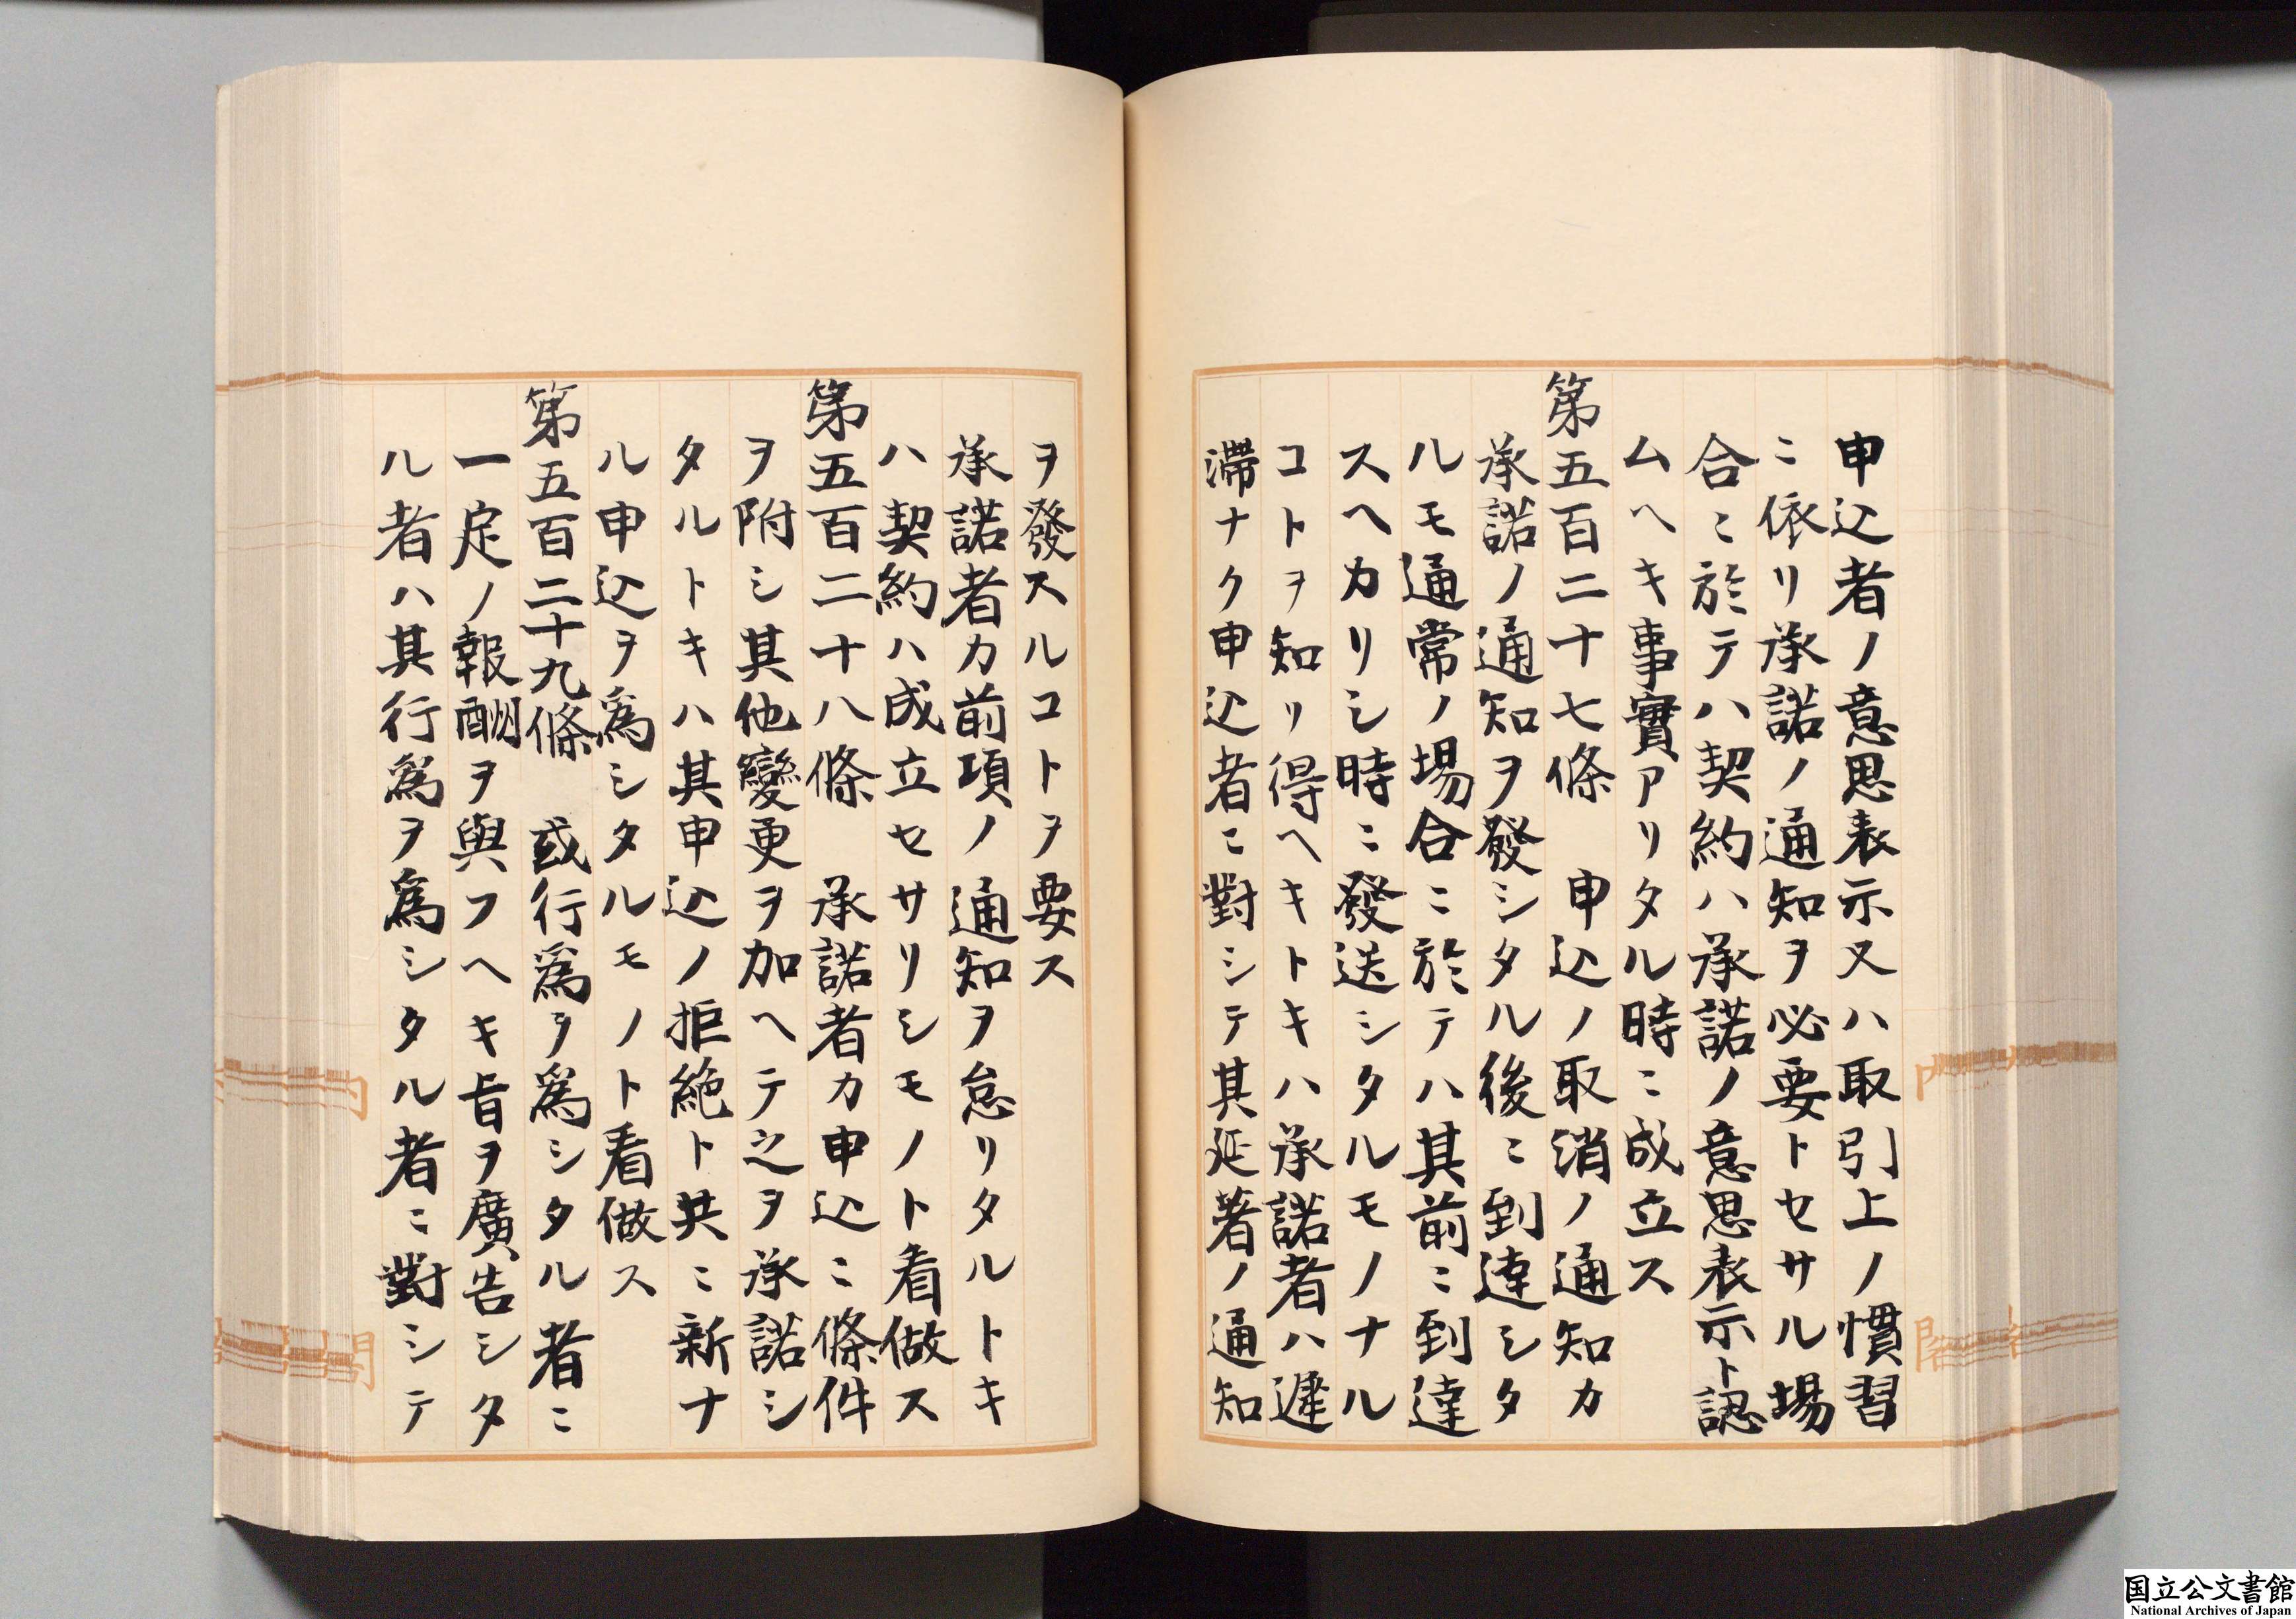 申込者ノ意思表示又ハ取引上ノ慣習
ニ依リ承諾ノ通知ヲ必要トセサル場
合ニ於テハ契約ハ承諾ノ意思表示ト認
ムヘキ事實アリタル時ニ成立ス
第五百二十七條　申込ノ取消ノ通知カ
承諾ノ通知ヲ發シタル後ニ到達シタ
ルモ通常ノ場合ニ於テハ其前ニ到達
スヘカリシ時ニ發送シタルモノナル
コトヲ知リ得ヘキトキハ承諾者ハ遲
滯ナク申込者ニ對シテ其延著ノ通知
ヲ發スルコトヲ要ス
承諾者カ前項ノ通知ヲ怠リタルトキ
ハ契約ハ成立セサリシモノト看做ス
第五百二十八條　承諾者カ申込ニ條件
ヲ附シ其他變更ヲ加ヘテ之ヲ承諾シ
タルトキハ其申込ノ拒絶ト共ニ新ナ
ル申込ヲ爲シタルモノト看做ス
第五百二十九條　或行爲ヲ爲シタル者ニ
一定ノ報酬ヲ與フヘキ旨ヲ廣告シタ
ル者ハ其行爲ヲ爲シタル者ニ對シテ
国立公文書館
National Archives of Japan